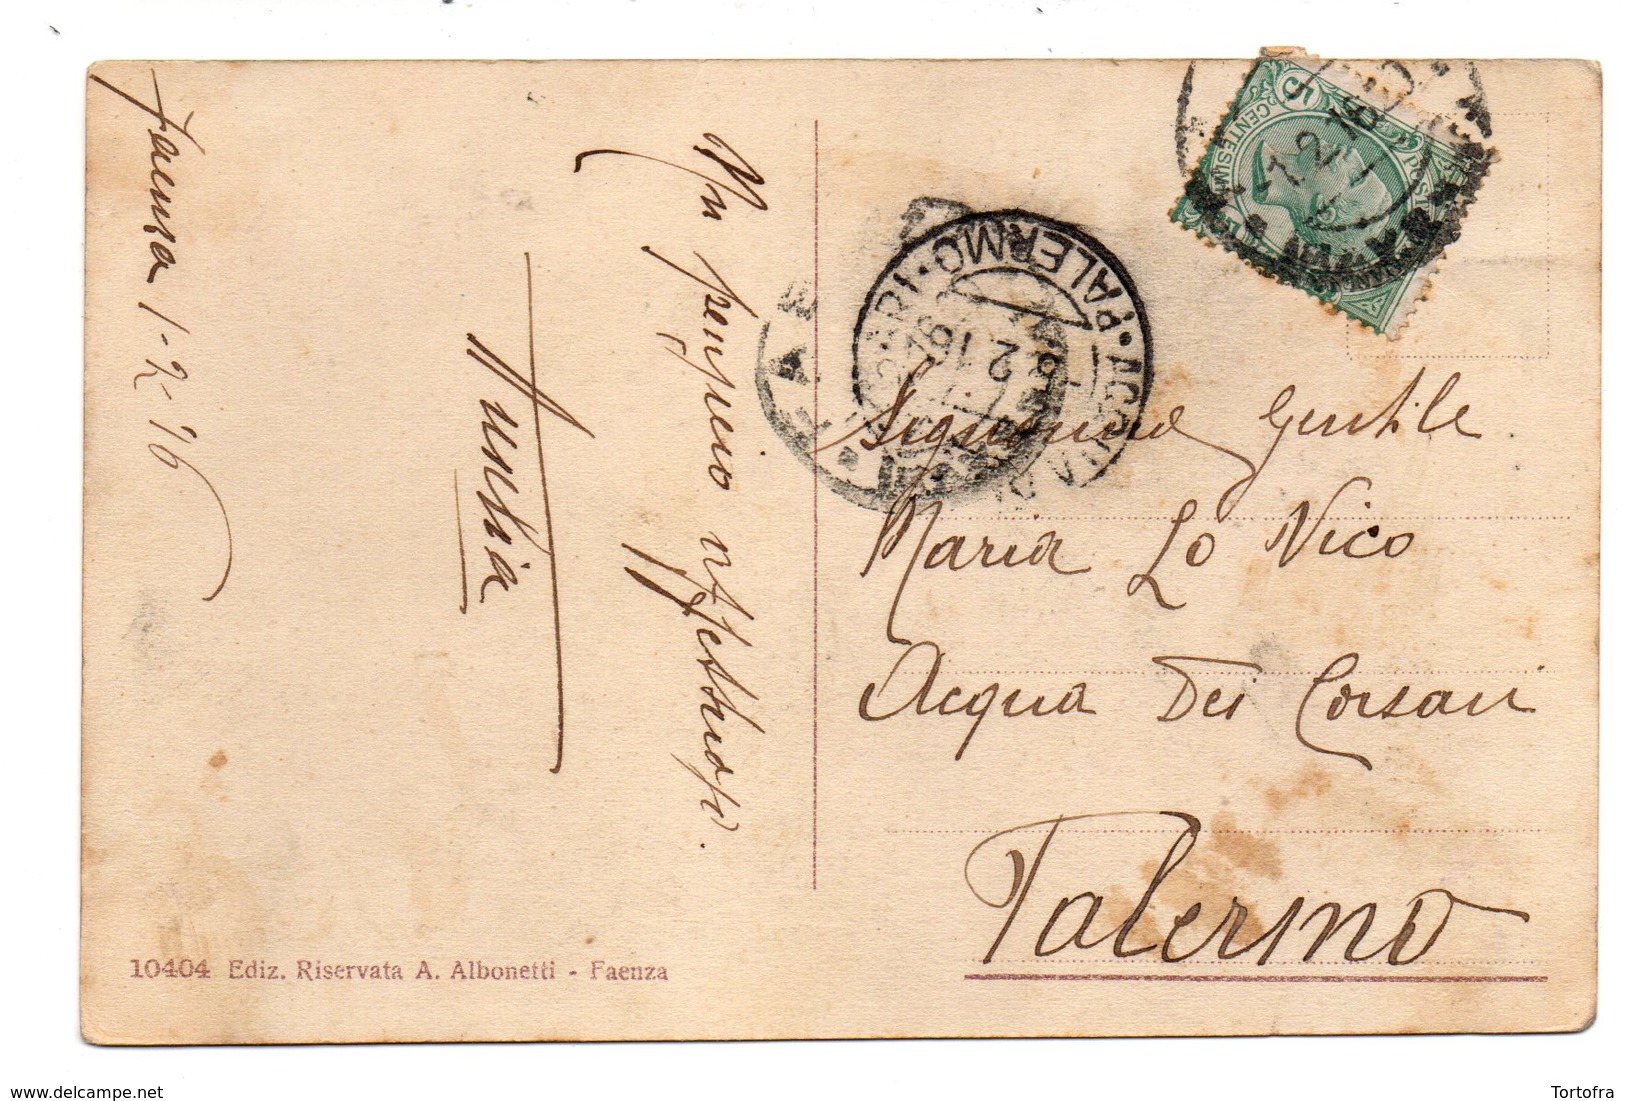 Faenza 1-2-16
Un pensiero affettuoso.
Nunzia
Signorina Gentile
Maria Lo Vico
Acqua Dei Corsari
Palermo
10404 Ediz. Riservata A. Albonetti - Faenza
5
CENTESIMI
POSTE
PALERMO
2 16
Tortofra
delcampe.net